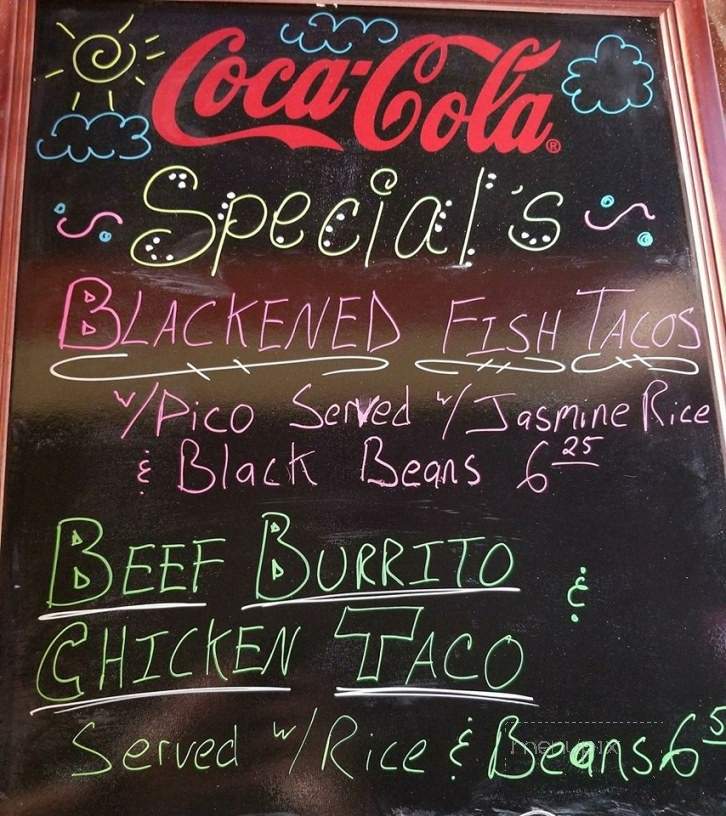 Coca-Cola®
Special's
BLACKENED FISH TACOS
w/Pico Served w/Jasmine Rice
& Black Beans 6 25
BEEF BURRITO &
CHICKEN TACO
Served w/Rice & Beans 6 5
menupix